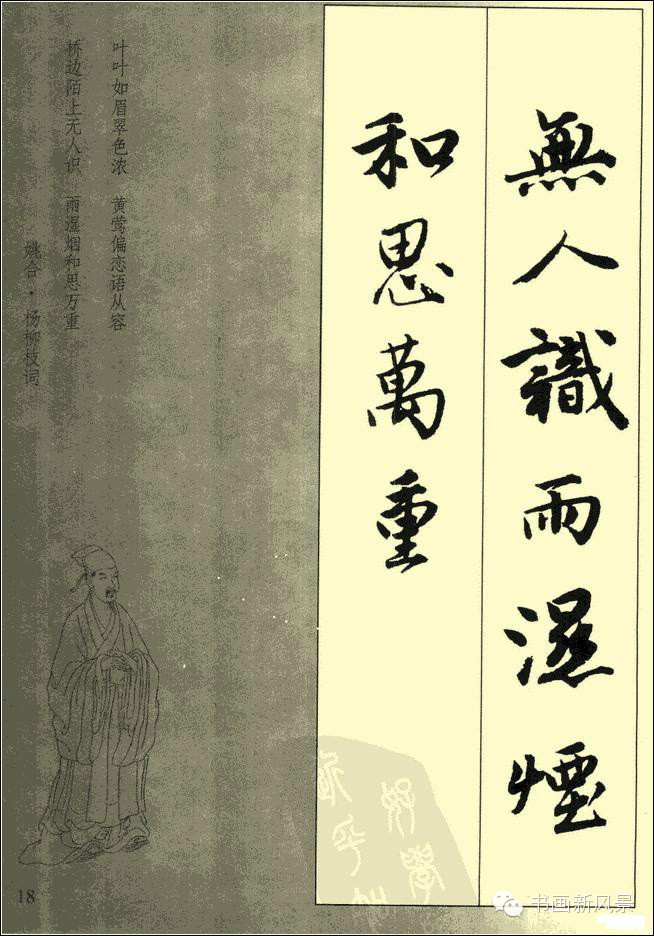 無人識雨濕煙
和思萬重
叶叶如眉翠色浓 黄莺偏恋语从容
桥边陌上无人识 雨湿烟和思万重
姚合·杨柳枝词
好學
18
书画新风景